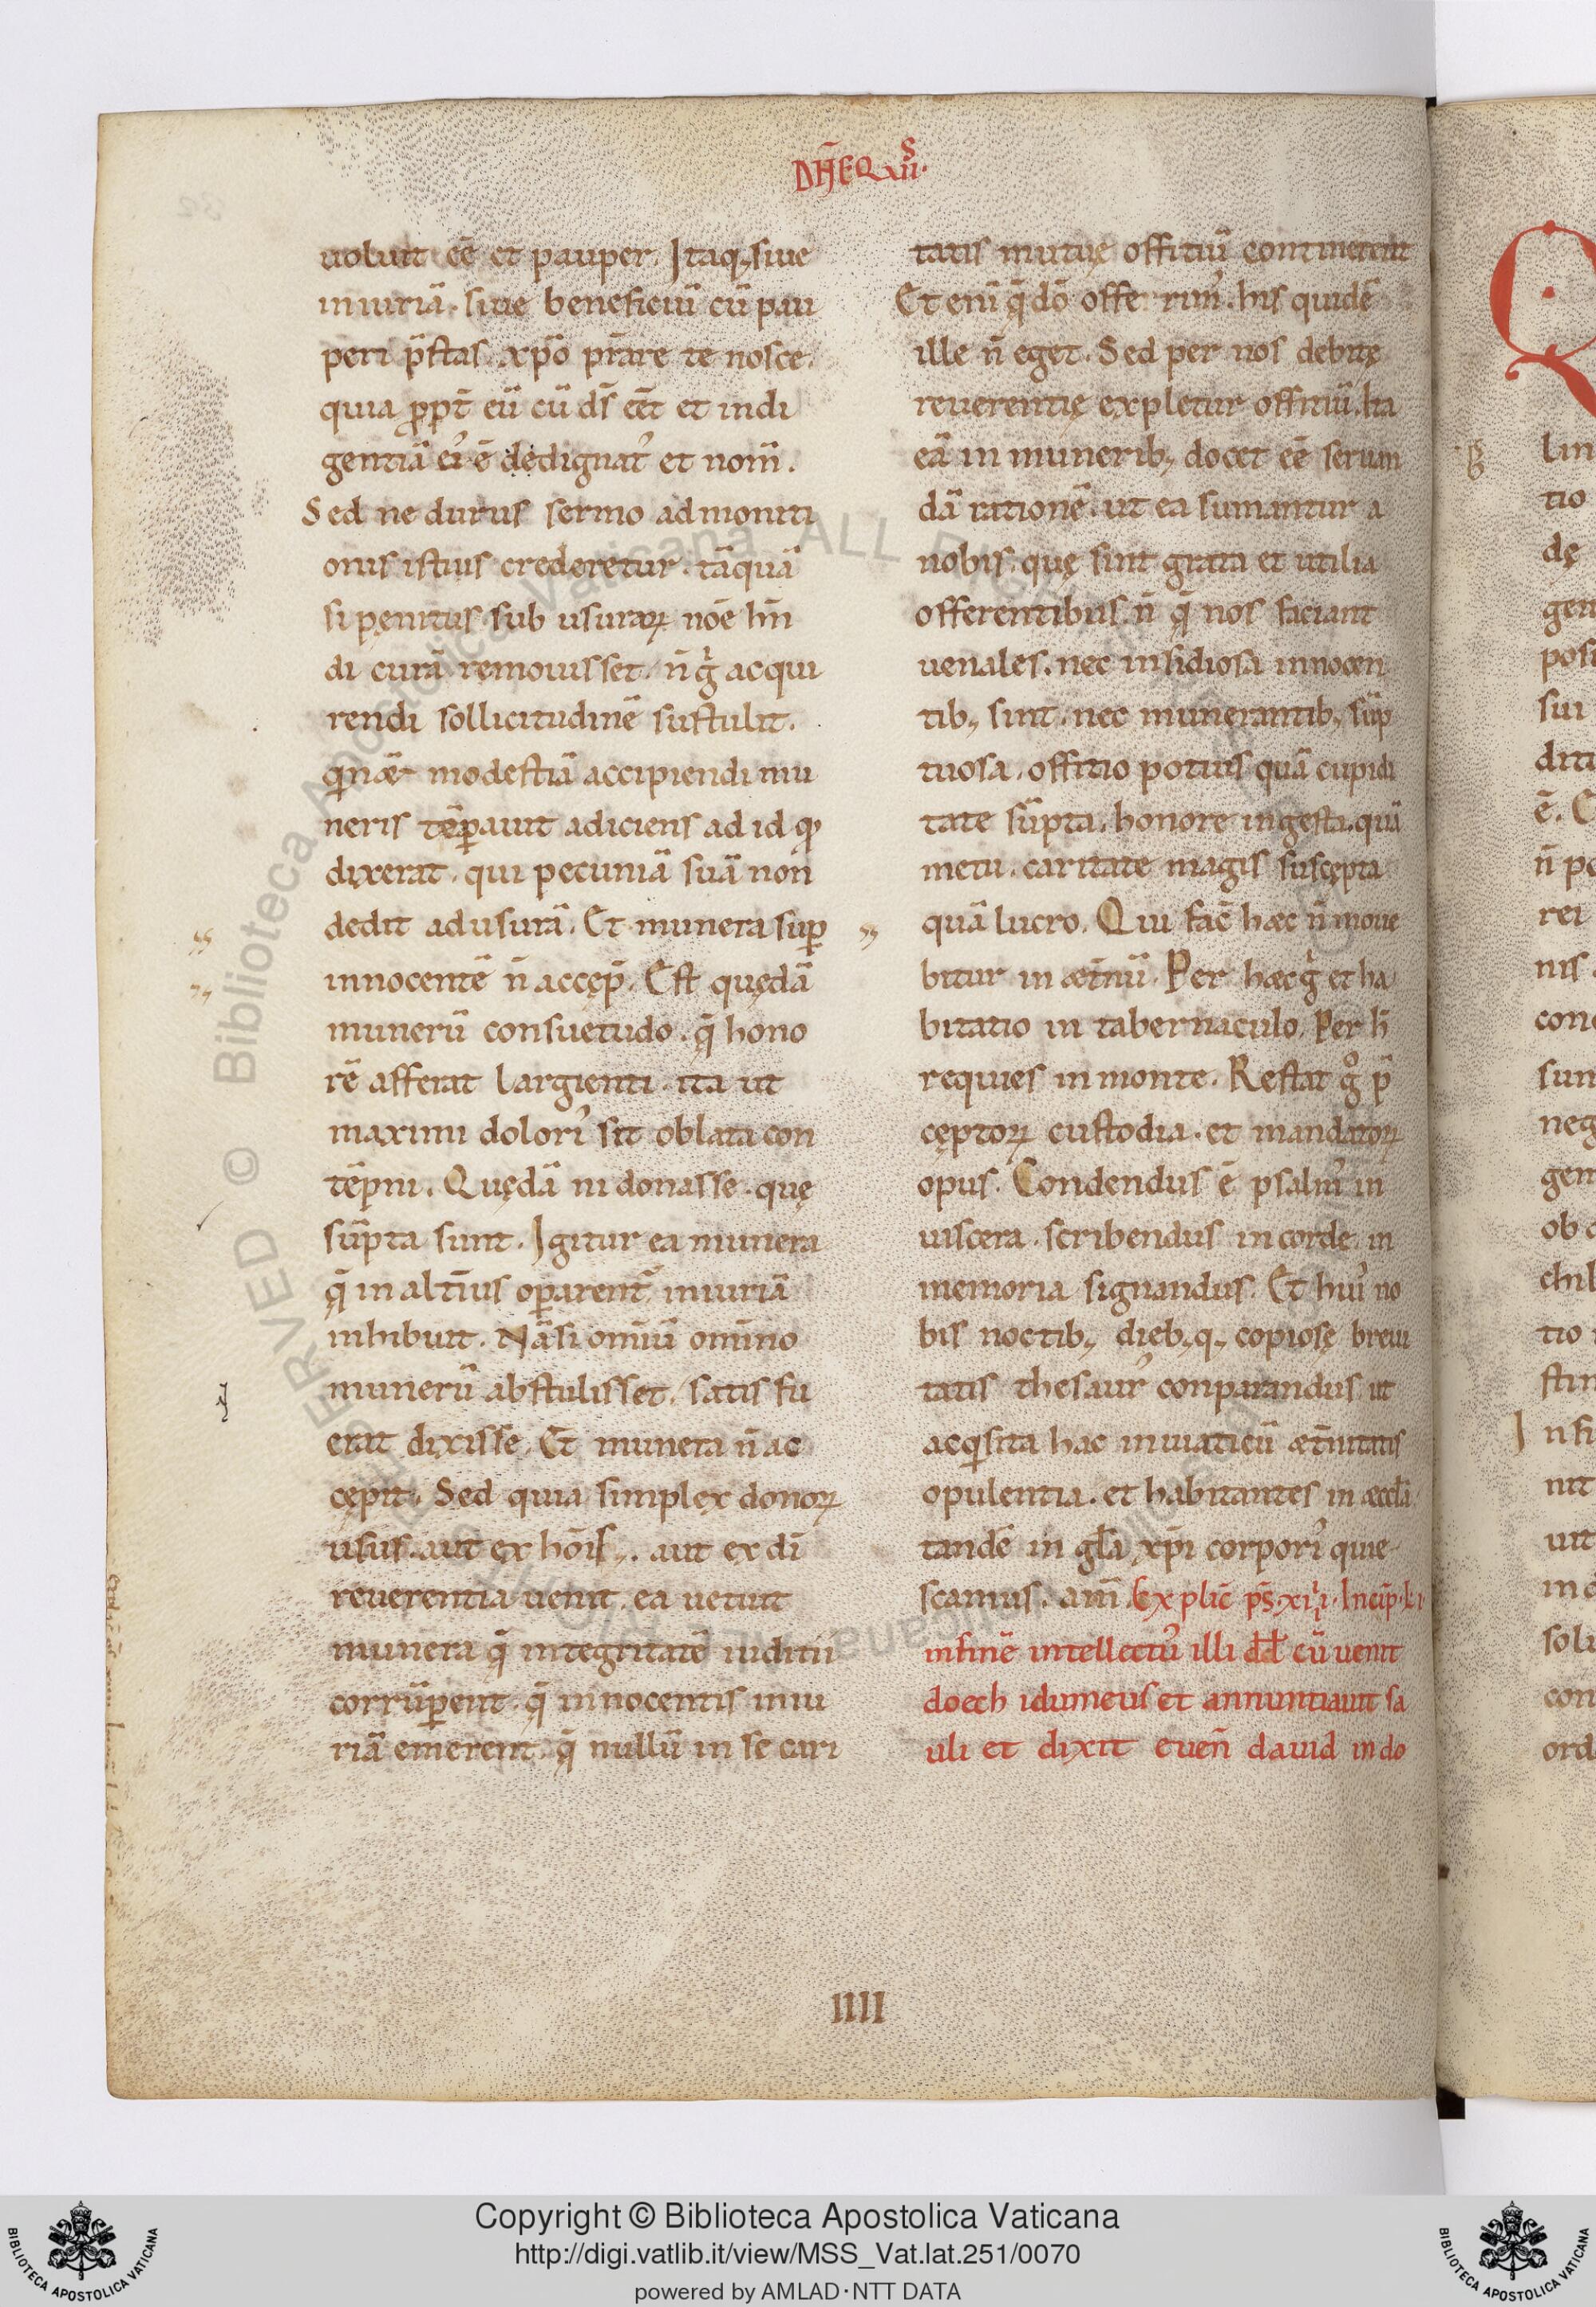 DN̄E Q̇S xiiii.
uoluit eē et pauper. Itaq; siue
iniuriā. siue beneficiū cū pau
peri p̄stas. xp̄o p̄rare te nosce.
quia ꝓpt̄ eū cū dī cēt et indi
gentiā ei' ē dedignat' et nom̄.
Sed ne durus sermo admoniti
onis istius crederetur. tāquā
si pęnitus sub usuraꝝ nōe hn̄
di curā remouisset. n̄ g̊ acqui
rendi sollicitudinē sustulit.
qn̄ & modestiā accipiendi mu
neris tēꝑauit adiciens ad id qđ
dixerat. qui pecuniā suā non
dedit ad usurā. Et munera suꝑ
innocentē n̄ accep̄. Est quędā
munerū consuetudo. q̄ hono
rē afferat largienti. ita ut
maximi dolori' sit oblata con
tēpni. Quędā ni donasse. quę
sūpta sunt. Igitur ea munera
q̄ in alti̅us oꝑarent' iniuriā
inhibuit. Nā si omiū omino
munerū abstulisset. satis fu
erat dixisse. Et munera n̄ ac
cępit. Sed quia simplex donoꝝ
usus. aut ex hōib;. aut ex dī
reuerentia uenit. ea uetuit
munera q̄ integritatē iuditii
corrūꝑent. q̄ innocentis iniu
riā emerent. q̄ nullū in se cari
tatis mutuę offitiū continerent
Et eni q̄dō offe rim'. his quidē
ille n̄ eget. Sed per nos debitę
reuerentię expletur offitiū. Ita
eā in munerib; docet eē seruan
dā rationē. ut ea sumantur a
nobis. quę sint grata et utilia
offerentibus. n̄ q̄ nos faciant
uenales. nec insidiosa innocen
tib; sint. nec munerantib; sūp
tuosa. offitio potuis quā cupidi
tate sūpta. honore ingesta. quā
metu. caritate magis suscępta
quā lucro. Qui fac̄ hæc n̄ moue
bitur in æt̄nū. Per hæc g̊ et ha
bitatio in tabernaculo. Per h̄
requies in monte. Restat g̊ p̄
cęptoꝝ custodia. et mandatoꝝ
opus. Condendus ē psalm' in
uiscera. scribendus in corde. in
memoria signandus. Et hui' no
bis noctib; dieb; q; copiosę breui
tatis thesaur' conparandus. ut
acq̇sita hac in uiaticū æt̄nitatis
opulentia. et habitantes in æccl̄a.
tandē in gl̄a xp̄i corpori' quie
scamus. am̄. Explic̄ ps̄. xiiii. Incip̄. li
in finē intellectu' illi dd̄ cū uenit
doech idumeus et annuntiauit sa
uli et dixit euen̄ dauid in do
IIII
Copyright © Biblioteca Apostolica Vaticana
http://digi.vatlib.it/view/MSS_Vat.lat.251/0070
powered by AMLAD·NTT DATA